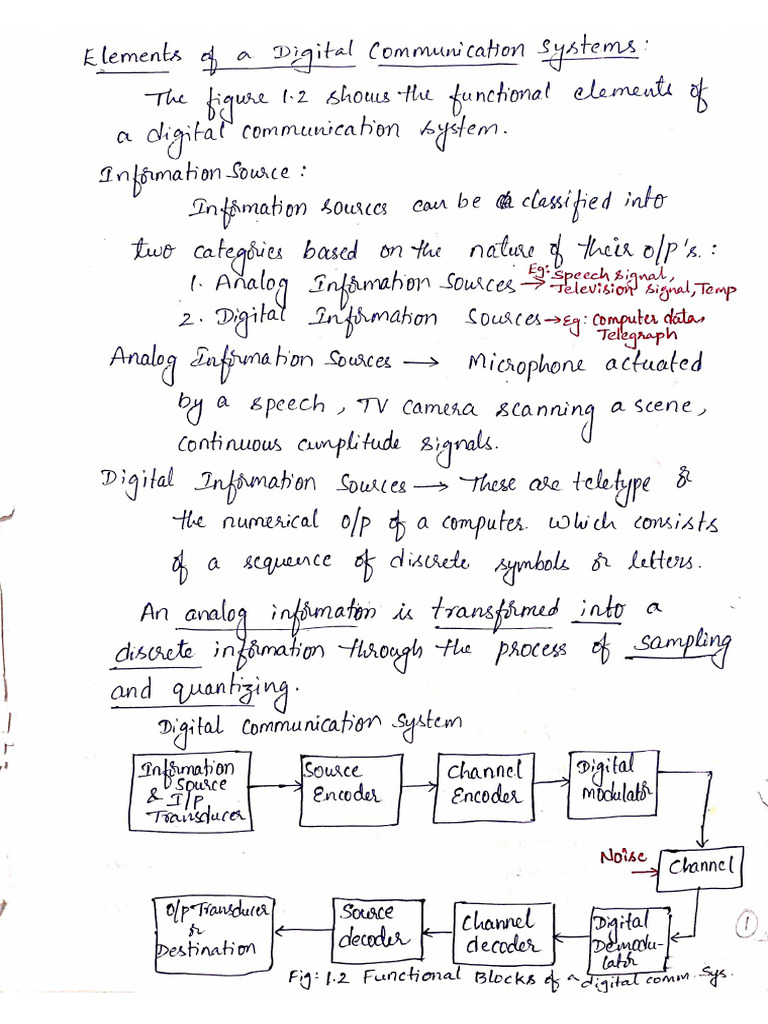 Elements of a Digital Communication Systems:
The figure 1.2 shows the functional elements of
a digital communication system.
Information Source:
Information sources can be classified into
two categories based on the nature of their o/p's.:
1. Analog Information Sources → Eg: Speech signal,
Television signal, Temp
2. Digital Information Sources → Eg: Computer data,
Telegraph
Analog Information Sources → Microphone actuated
by a speech, TV camera scanning a scene,
continuous amplitude signals.
Digital Information Sources → These are teletype or
the numerical o/p of a computer which consists
of a sequence of discrete symbols or letters.
An analog information is transformed into a
discrete information through the process of sampling
and quantizing.
Digital Communication System
Information
Source
& I/P
Transducer
Source
Encoder
Channel
Encoder
Digital
Modulator
Noise
Channel
O/p Transducer
or
Destination
Source
decoder
Channel
decoder
Digital
Demodu-
lator
1
Fig: 1.2 Functional Blocks of a digital comm. Sys.